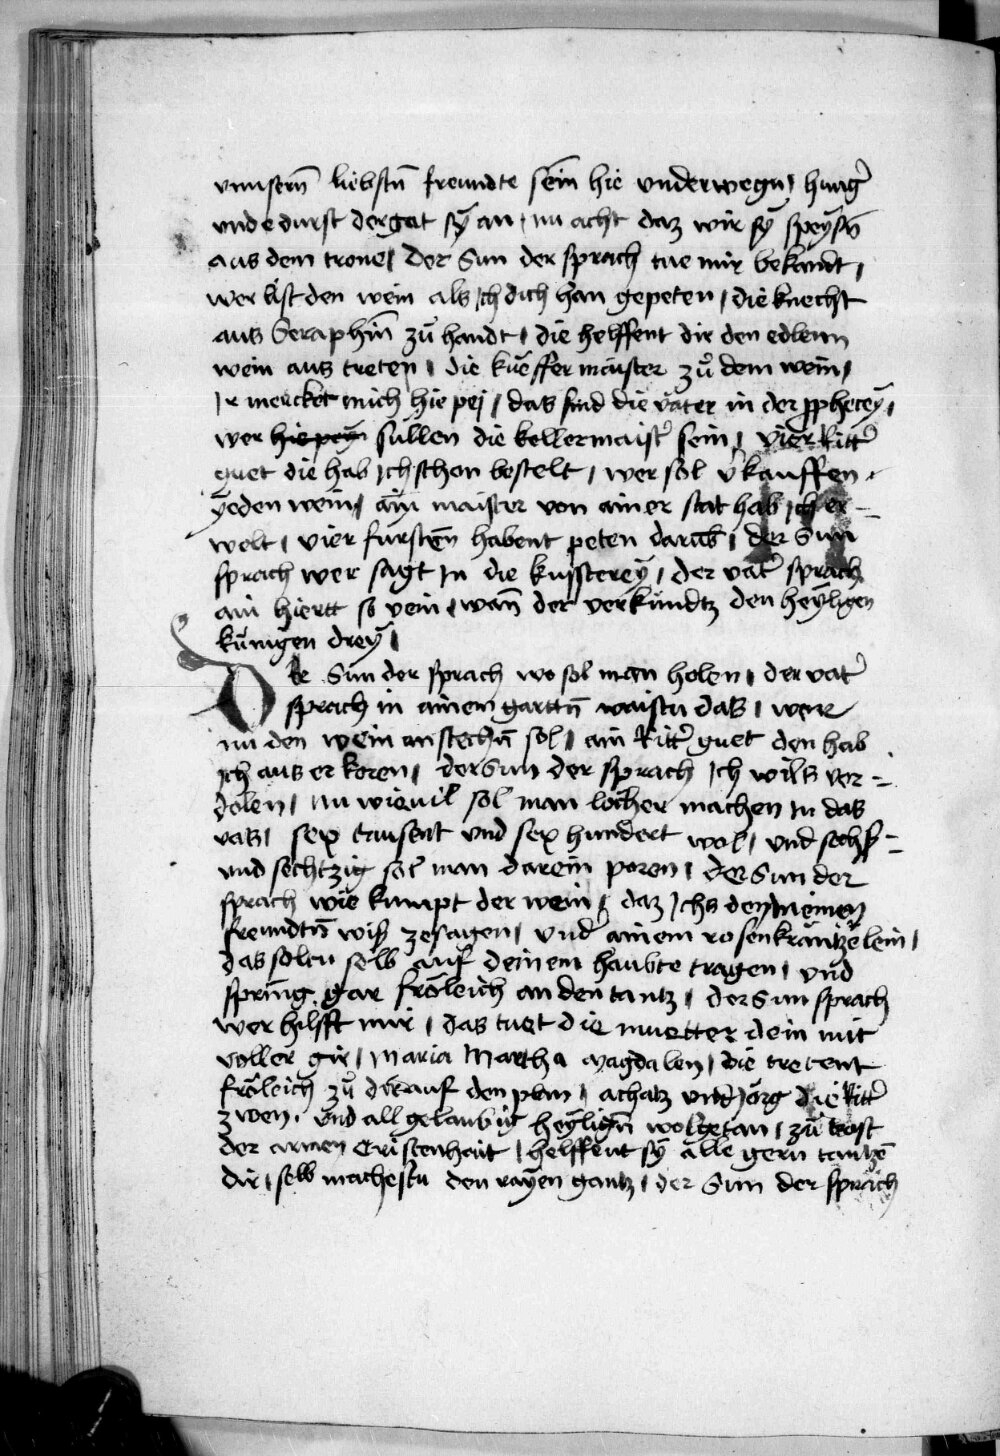 vnnsern̄ liebstn̄ freundte sein hie vnderwegn / hung̉
vnd e durst der gat sy an / nu acht daz wir sy speysn̄
aus dem trone / Der Sun der sprach tue mir bekandt /
wer list den wein als ich dich han gepeten / die knecht
aus Seraphin zu handt / die helffent dir den edlenn
wein aus treten / die kueffermaister zu dem wein /
Ir mercket mich hie pej / das sind die väter in der ꝓphecey /
wer hie pey sullen die kellermaist̉ sein / vier Ritt̉
guet die hab ich schon bestelt / wer sol v̉kauffen
yeden wein / ain maister von ainer stat hab ich er=
welt / vier fursten habent peten darūb / der Sun
sprach wer sagt In die kussterey / der vat̉ sprach
ain hiertt so rein / wan̄ der verkundtz den heyligen
kunigen drey /
De Sun der sprach wo sol man holen / der vat̉
sprach in ainem garttn̄ waistu das / wer
nu den wein anstechn̄ sol / ain Ritt̉ guet den hab
ich aus erkoren / der Sun der sprach Ich wils ver=
dolen / nu wievil sol man löcher machen In das
vas / sex tausent vnd sex hundert wol / vnd sechs=
vnd sechtzig sol man darein poren / der Sun der
sprach wie kumpt der wein / daz Ichs den meinen
freundtn̄ wiß zesagen / vnd̉ ainem rosenkräntzelein /
das soltu selb auf deinem haubte tragen / vnd
spring gar fröleich an den tantz / der Sun sprach
wer hilfft mir / das tuet die muetter dein mit
voller gir / Maria Martha Magdalen / die tretent
fröleich zu dir auf den plan / achatz vnd Jörg die Ritt̉
zwen / vnd all gelaubig heylign̄ wolgetan / zu trost
der armen Cristenhait / helffent sy alle gern tantzē
dir / selb machestu den rayen gantz / der Sun der sprach